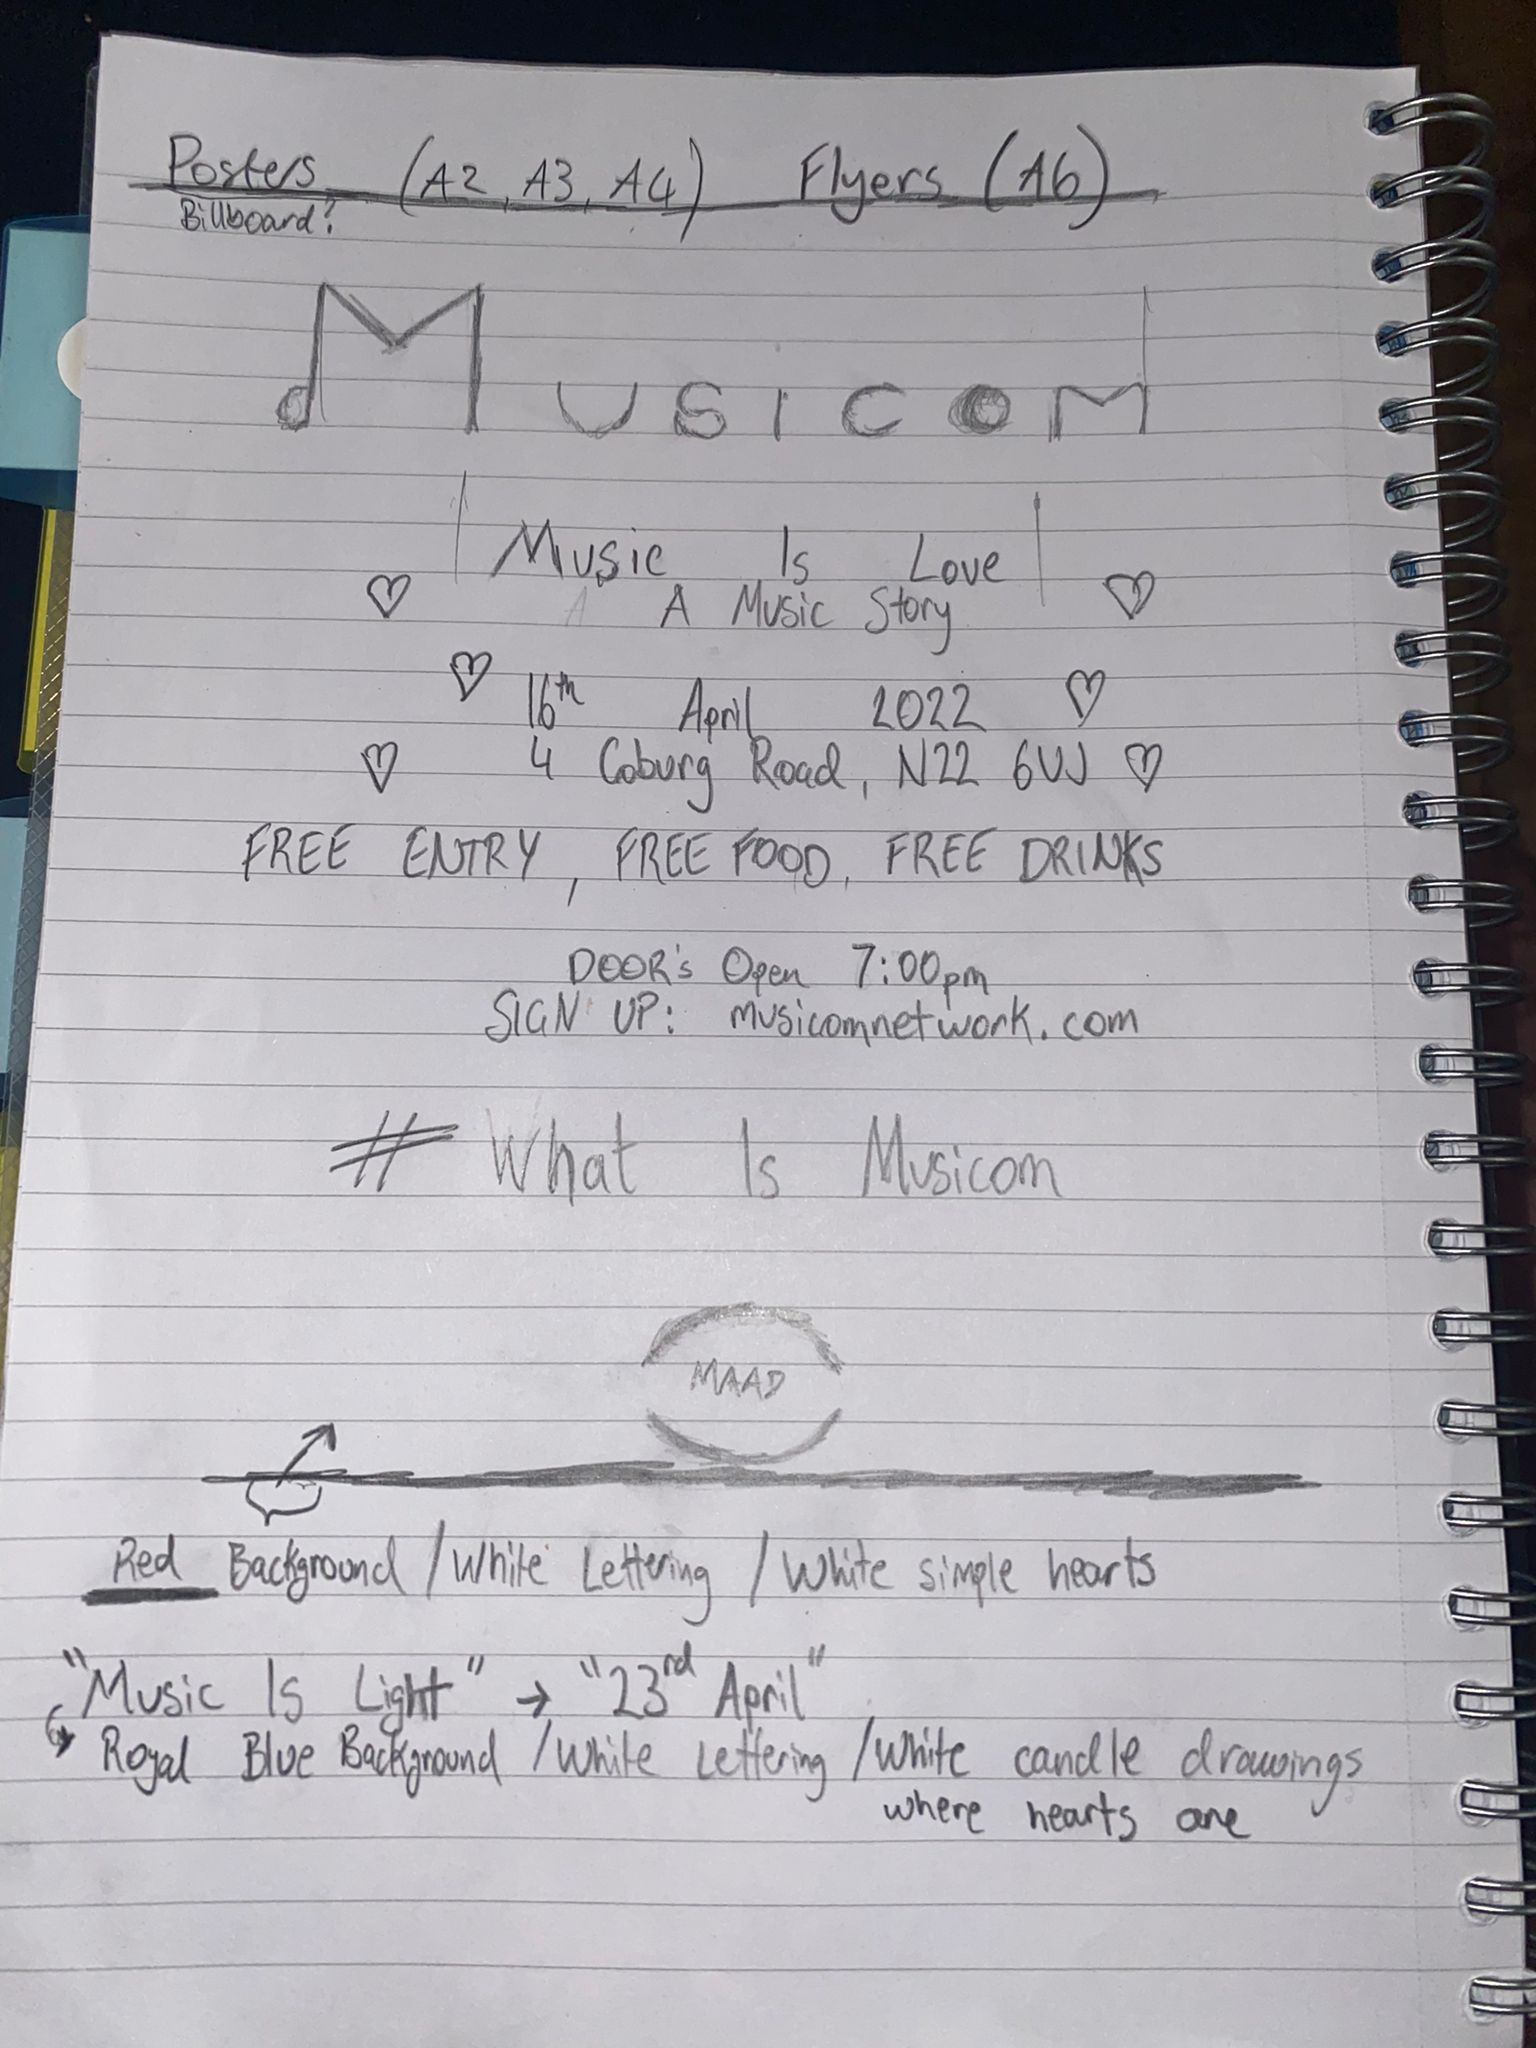 Posters (A2, A3, A4) Flyers (A6)
Billboard?
Musicom
Music Is Love
A Music Story
16th April 2022
4 Coburg Road, N22 6UJ
FREE ENTRY, FREE FOOD, FREE DRINKS
DOOR's Open 7:00pm
SIGN UP: musicomnetwork.com
# What Is Musicom
MAAD
Red Background / White Lettering / White simple hearts
"Music Is Light" → "23rd April"
Royal Blue Background / White Lettering / White candle drawings
where hearts are